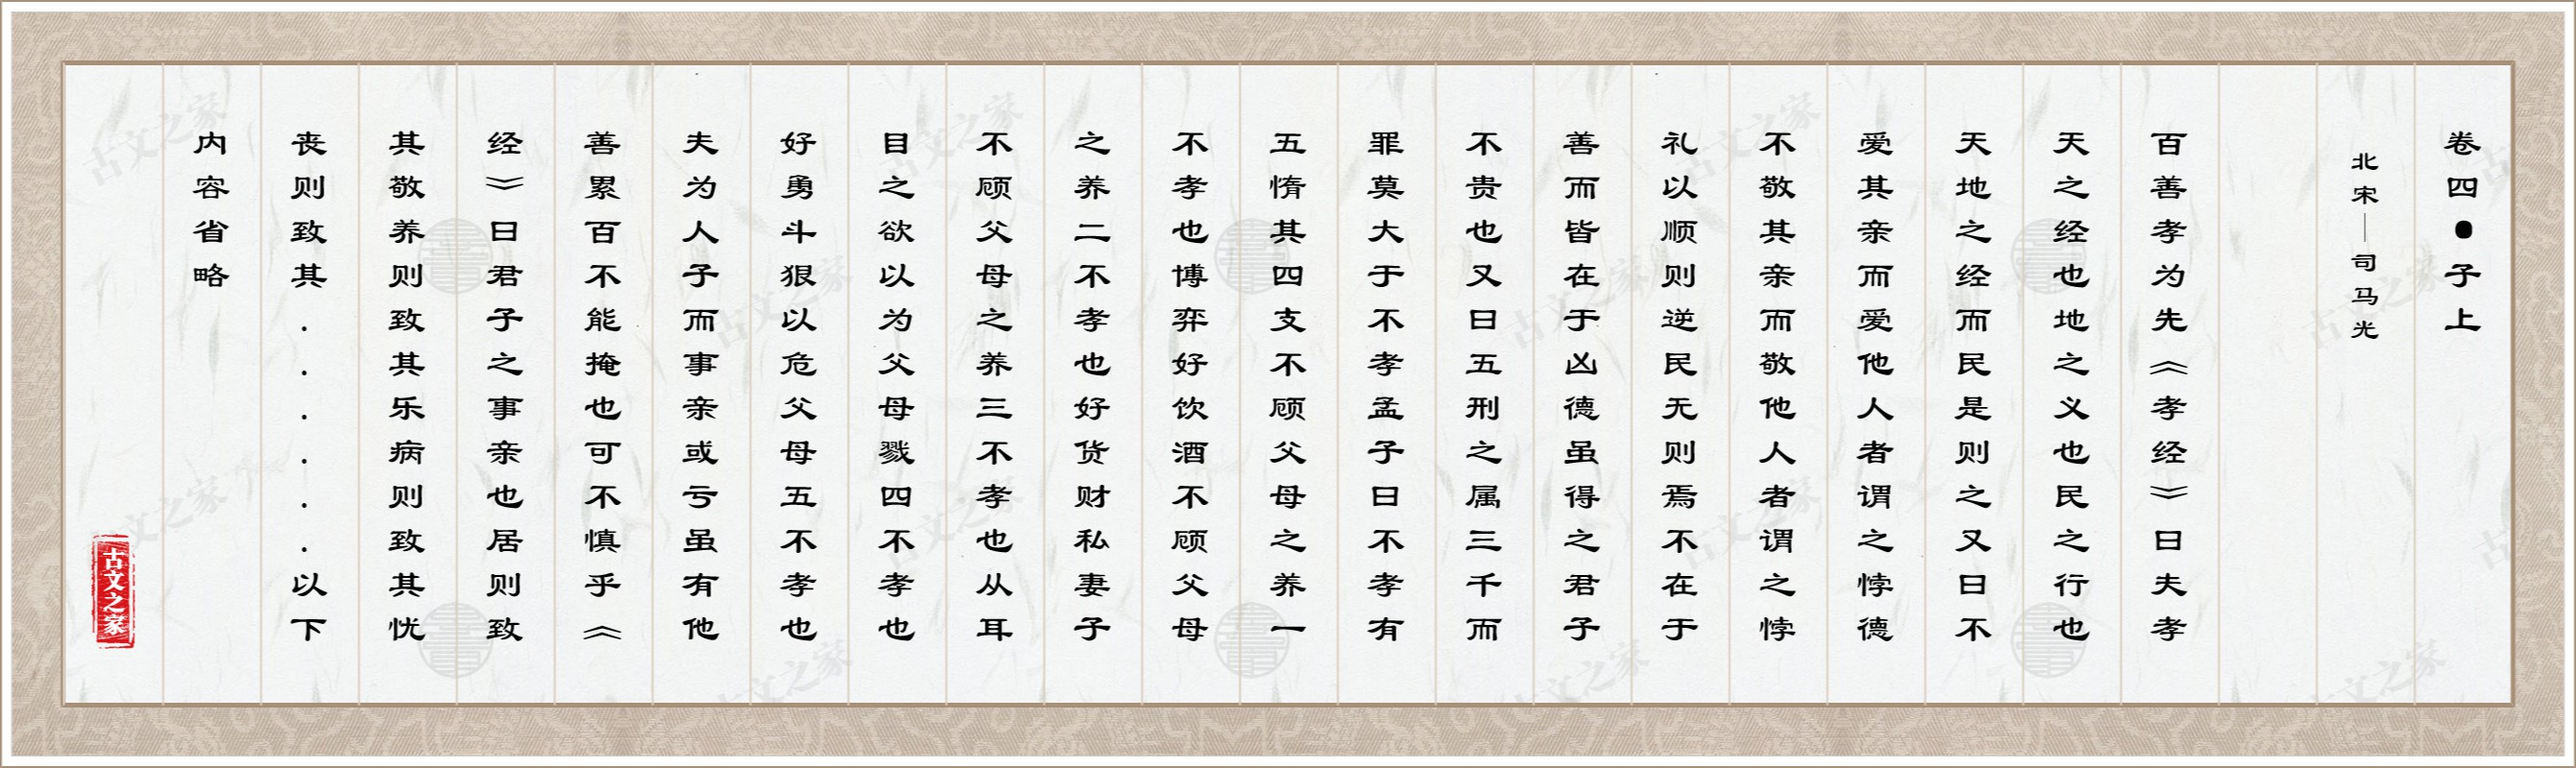 卷四●子上
北宋—司马光
百善孝为先《孝经》曰夫孝
天之经也地之义也民之行也
天地之经而民是则之又曰不
爱其亲而爱他人者谓之悖德
不敬其亲而敬他人者谓之悖
礼以顺则逆民无则焉不在于
善而皆在于凶德虽得之君子
不贵也又曰五刑之属三千而
罪莫大于不孝孟子曰不孝有
五惰其四支不顾父母之养一
不孝也博弈好饮酒不顾父母
之养二不孝也好货财私妻子
不顾父母之养三不孝也从耳
目之欲以为父母戮四不孝也
好勇斗狠以危父母五不孝也
夫为人子而事亲或亏虽有他
善累百不能掩也可不慎乎《
经》曰君子之事亲也居则致
其敬养则致其乐病则致其忧
丧则致其......以下
内容省略
古文之家